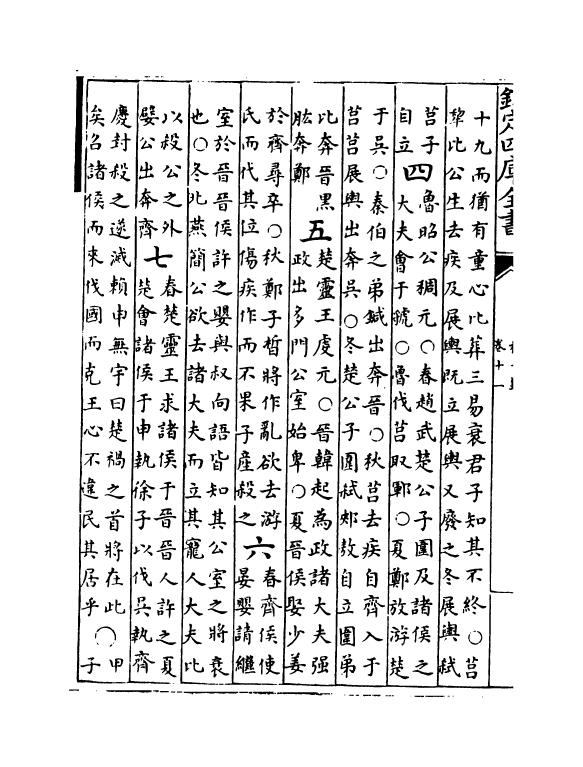 欽定四庫全書
卷十一
十九而猶有童心比葬三易衰君子知其不終〇莒
犂比公生去疾及展輿旣立展輿又廢之冬展輿弑
莒子
自立
四
魯昭公稠元〇春趙武楚公子圍及諸侯之
大夫會于虢〇魯伐莒取鄆〇夏鄭放游楚
于吳〇秦伯之弟鍼出奔晉〇秋莒去疾自齊入于
莒莒展輿出奔吳〇冬楚公子圍弑郟敖自立圍弟
比奔晉黑
肱奔鄭
五
楚靈王虔元〇晉韓起為政諸大夫强
政出多門公室始卑〇夏晉侯娶少姜
於齊尋卒〇秋鄭子晳將作亂欲去游
氏而代其位傷疾作而不果子產殺之
六
春齊侯使
晏嬰請繼
室於晉晉侯許之嬰與叔向語皆知其公室之將衰
也〇冬北燕簡公欲去諸大夫而立其寵人大夫比
以殺公之外
嬖公出奔齊
七
春楚靈王求諸侯于晉晉人許之夏
楚會諸侯于申執徐子以伐吳執齊
慶封殺之遂滅賴申無宇曰楚禍之首將在此
矣召諸侯而來伐國而克王心不違民其居乎
〇甲
子